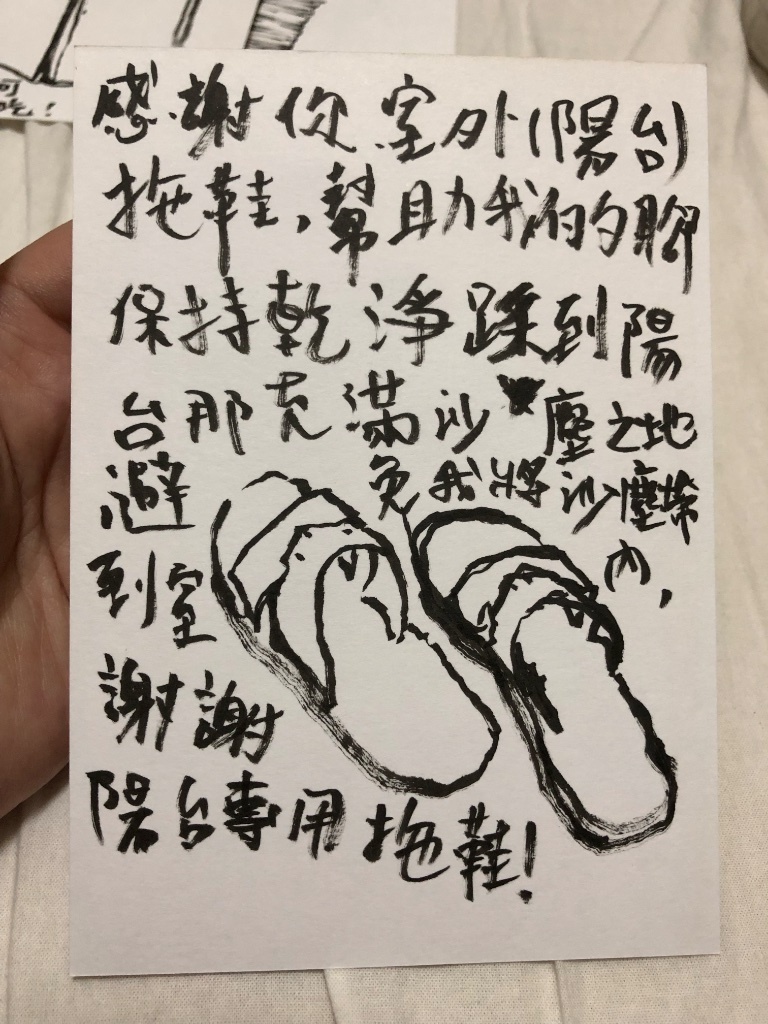 感謝你室外(陽台)
拖鞋,幫助我的腳
保持乾淨踩到陽
台那充滿沙塵之地
避免我將沙塵帶
到室內,
謝謝
陽台專用拖鞋!